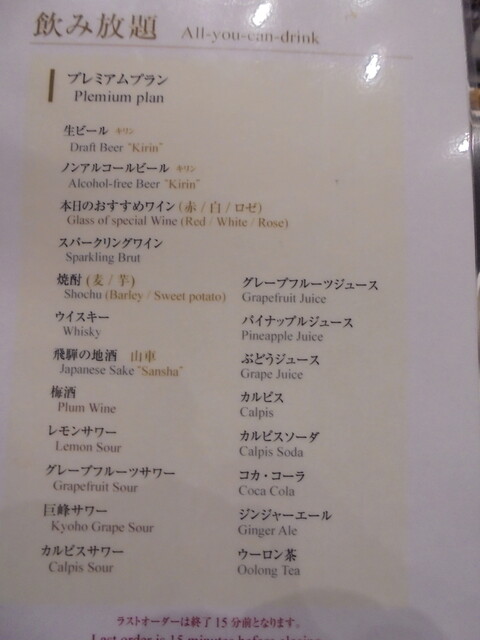 飲み放題 All-you-can-drink
プレミアムプラン
Plemium plan
生ビール キリン
Draft Beer "Kirin"
ノンアルコールビール キリン
Alcohol-free Beer "Kirin"
本日のおすすめワイン (赤 / 白 / ロゼ)
Glass of special Wine (Red / White / Rose)
スパークリングワイン
Sparkling Brut
焼酎 (麦 / 芋)
Shochu (Barley / Sweet potato)
ウイスキー
Whisky
飛騨の地酒 山車
Japanese Sake "Sansha"
梅酒
Plum Wine
レモンサワー
Lemon Sour
グレープフルーツサワー
Grapefruit Sour
巨峰サワー
Kyoho Grape Sour
カルピスサワー
Calpis Sour
グレープフルーツジュース
Grapefruit Juice
パイナップルジュース
Pineapple Juice
ぶどうジュース
Grape Juice
カルピス
Calpis
カルピスソーダ
Calpis Soda
コカ・コーラ
Coca Cola
ジンジャーエール
Ginger Ale
ウーロン茶
Oolong Tea
ラストオーダーは終了 15 分前となります。
Last order is 15 minutes before closing